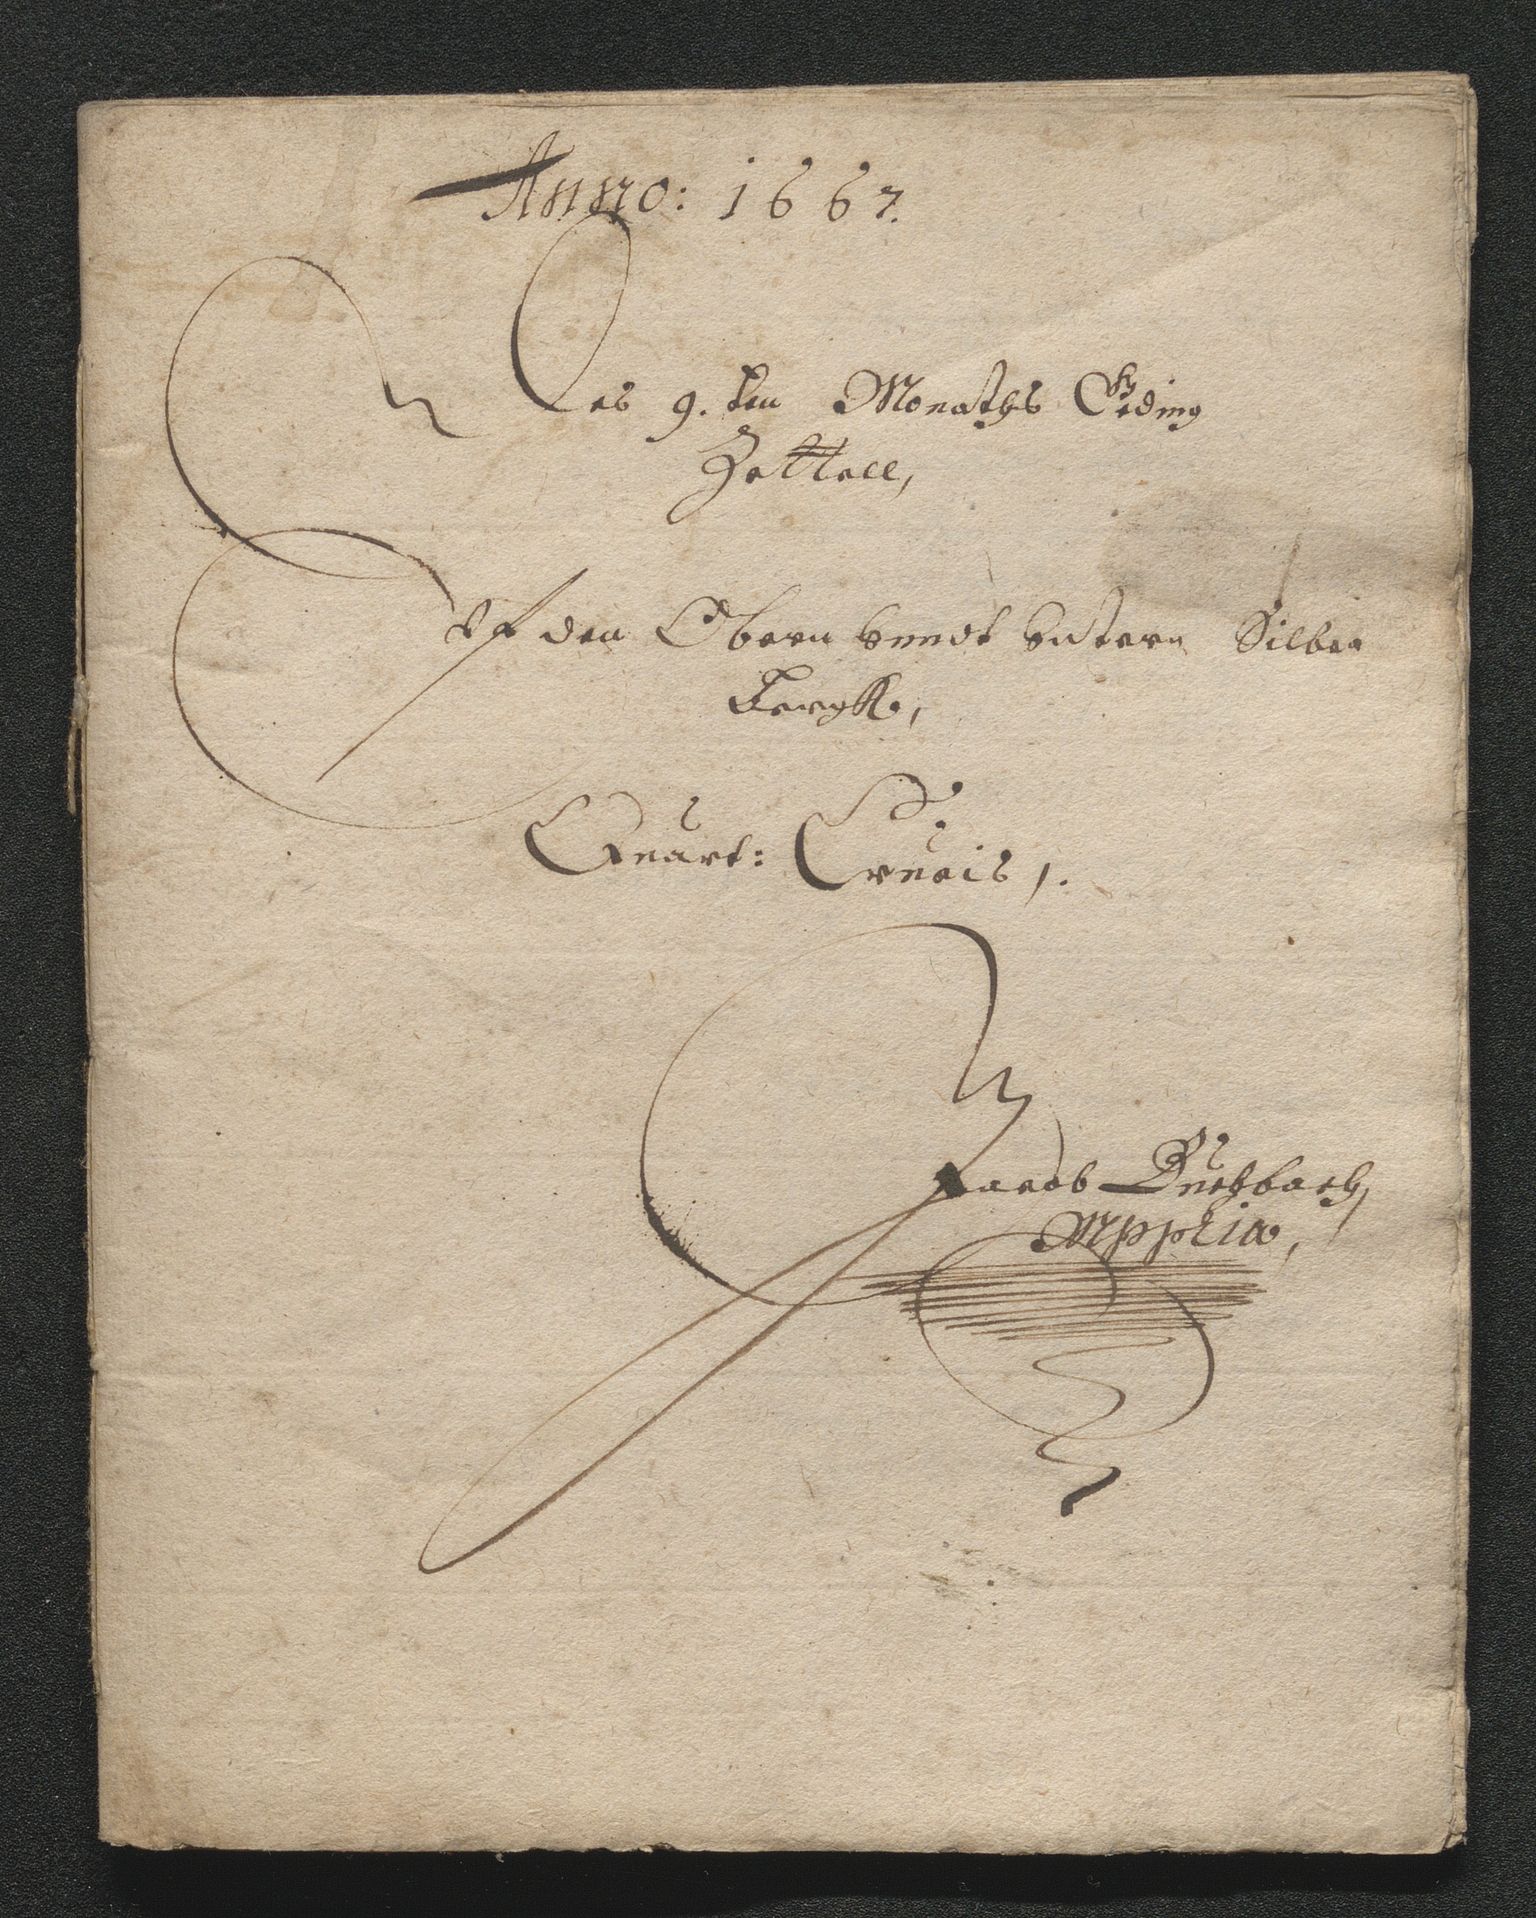 Anno: 1667.
Des 9. ten Monaths Geding
Zettell,
Vf den Obern vnndt vntern Silber
bergk,
Quart: Crucis 1.
Jacob Buchbach
Mppria,